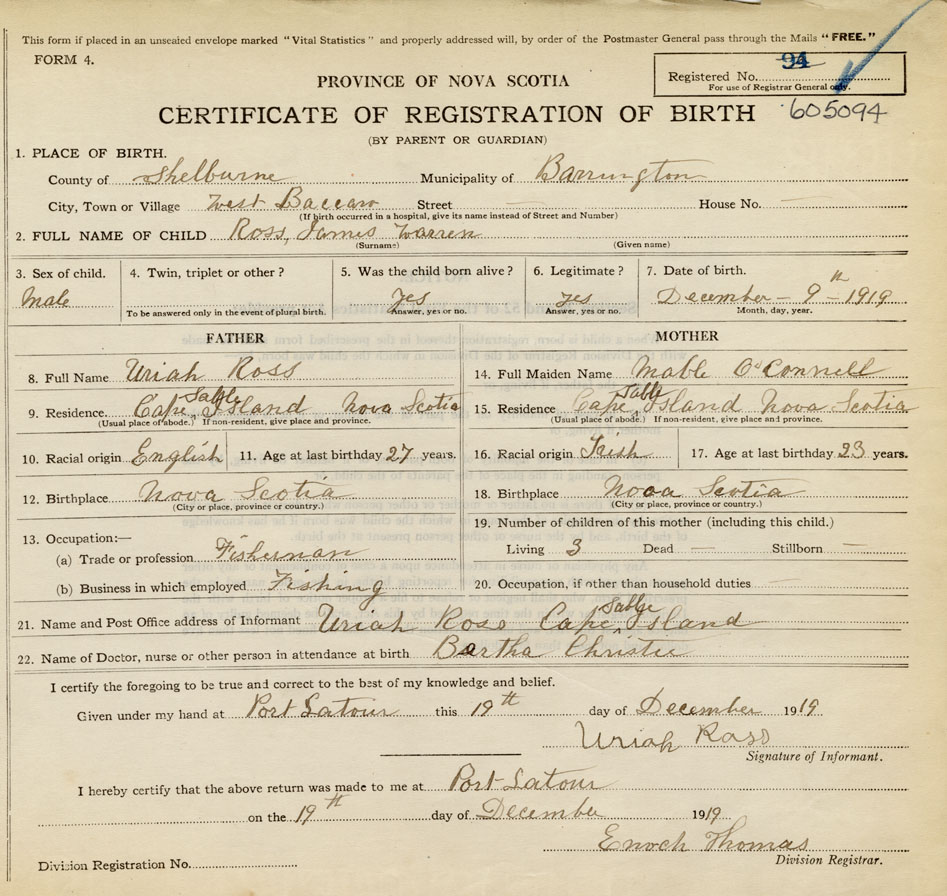 This form if placed in an unsealed envelope marked "Vital Statistics" and properly addressed will, by order of the Postmaster General pass through the Mails "FREE."
FORM 4.
Registered No. 94
For use of Registrar General only.
PROVINCE OF NOVA SCOTIA
CERTIFICATE OF REGISTRATION OF BIRTH 605094
(BY PARENT OR GUARDIAN)
1. PLACE OF BIRTH.
County of Shelburne Municipality of Barrington
City, Town or Village West Baccaro Street — House No.
(If birth occurred in a hospital, give its name instead of Street and Number)
2. FULL NAME OF CHILD Ross, James Warren
(Surname) (Given name)
3. Sex of child. 4. Twin, triplet or other? 5. Was the child born alive? 6. Legitimate? 7. Date of birth.
Male yes yes December - 9th - 1919
To be answered only in the event of plural birth. Answer, yes or no. Answer, yes or no. Month, day, year.
FATHER MOTHER
8. Full Name Uriah Ross 14. Full Maiden Name Mable O'Connell
9. Residence. Cape Sable Island Nova Scotia 15. Residence Cape Sable Island Nova Scotia
(Usual place of abode.) If non-resident, give place and province. (Usual place of abode.) If non-resident, give place and province.
10. Racial origin English 11. Age at last birthday 27 years. 16. Racial origin Irish 17. Age at last birthday 23 years.
12. Birthplace Nova Scotia 18. Birthplace Nova Scotia
(City or place, province or country.) (City or place, province or country.)
13. Occupation:— 19. Number of children of this mother (including this child.)
(a) Trade or profession Fisherman Living 3 Dead — Stillborn —
(b) Business in which employed Fishing 20. Occupation, if other than household duties
21. Name and Post Office address of Informant Uriah Ross Cape Sable Island
22. Name of Doctor, nurse or other person in attendance at birth Bertha Christie
I certify the foregoing to be true and correct to the best of my knowledge and belief.
Given under my hand at Port Latour this 19th day of December 1919
Uriah Ross
Signature of Informant.
I hereby certify that the above return was made to me at Port Latour
on the 19th day of December 1919
Enoch Thomas
Division Registrar.
Division Registration No.